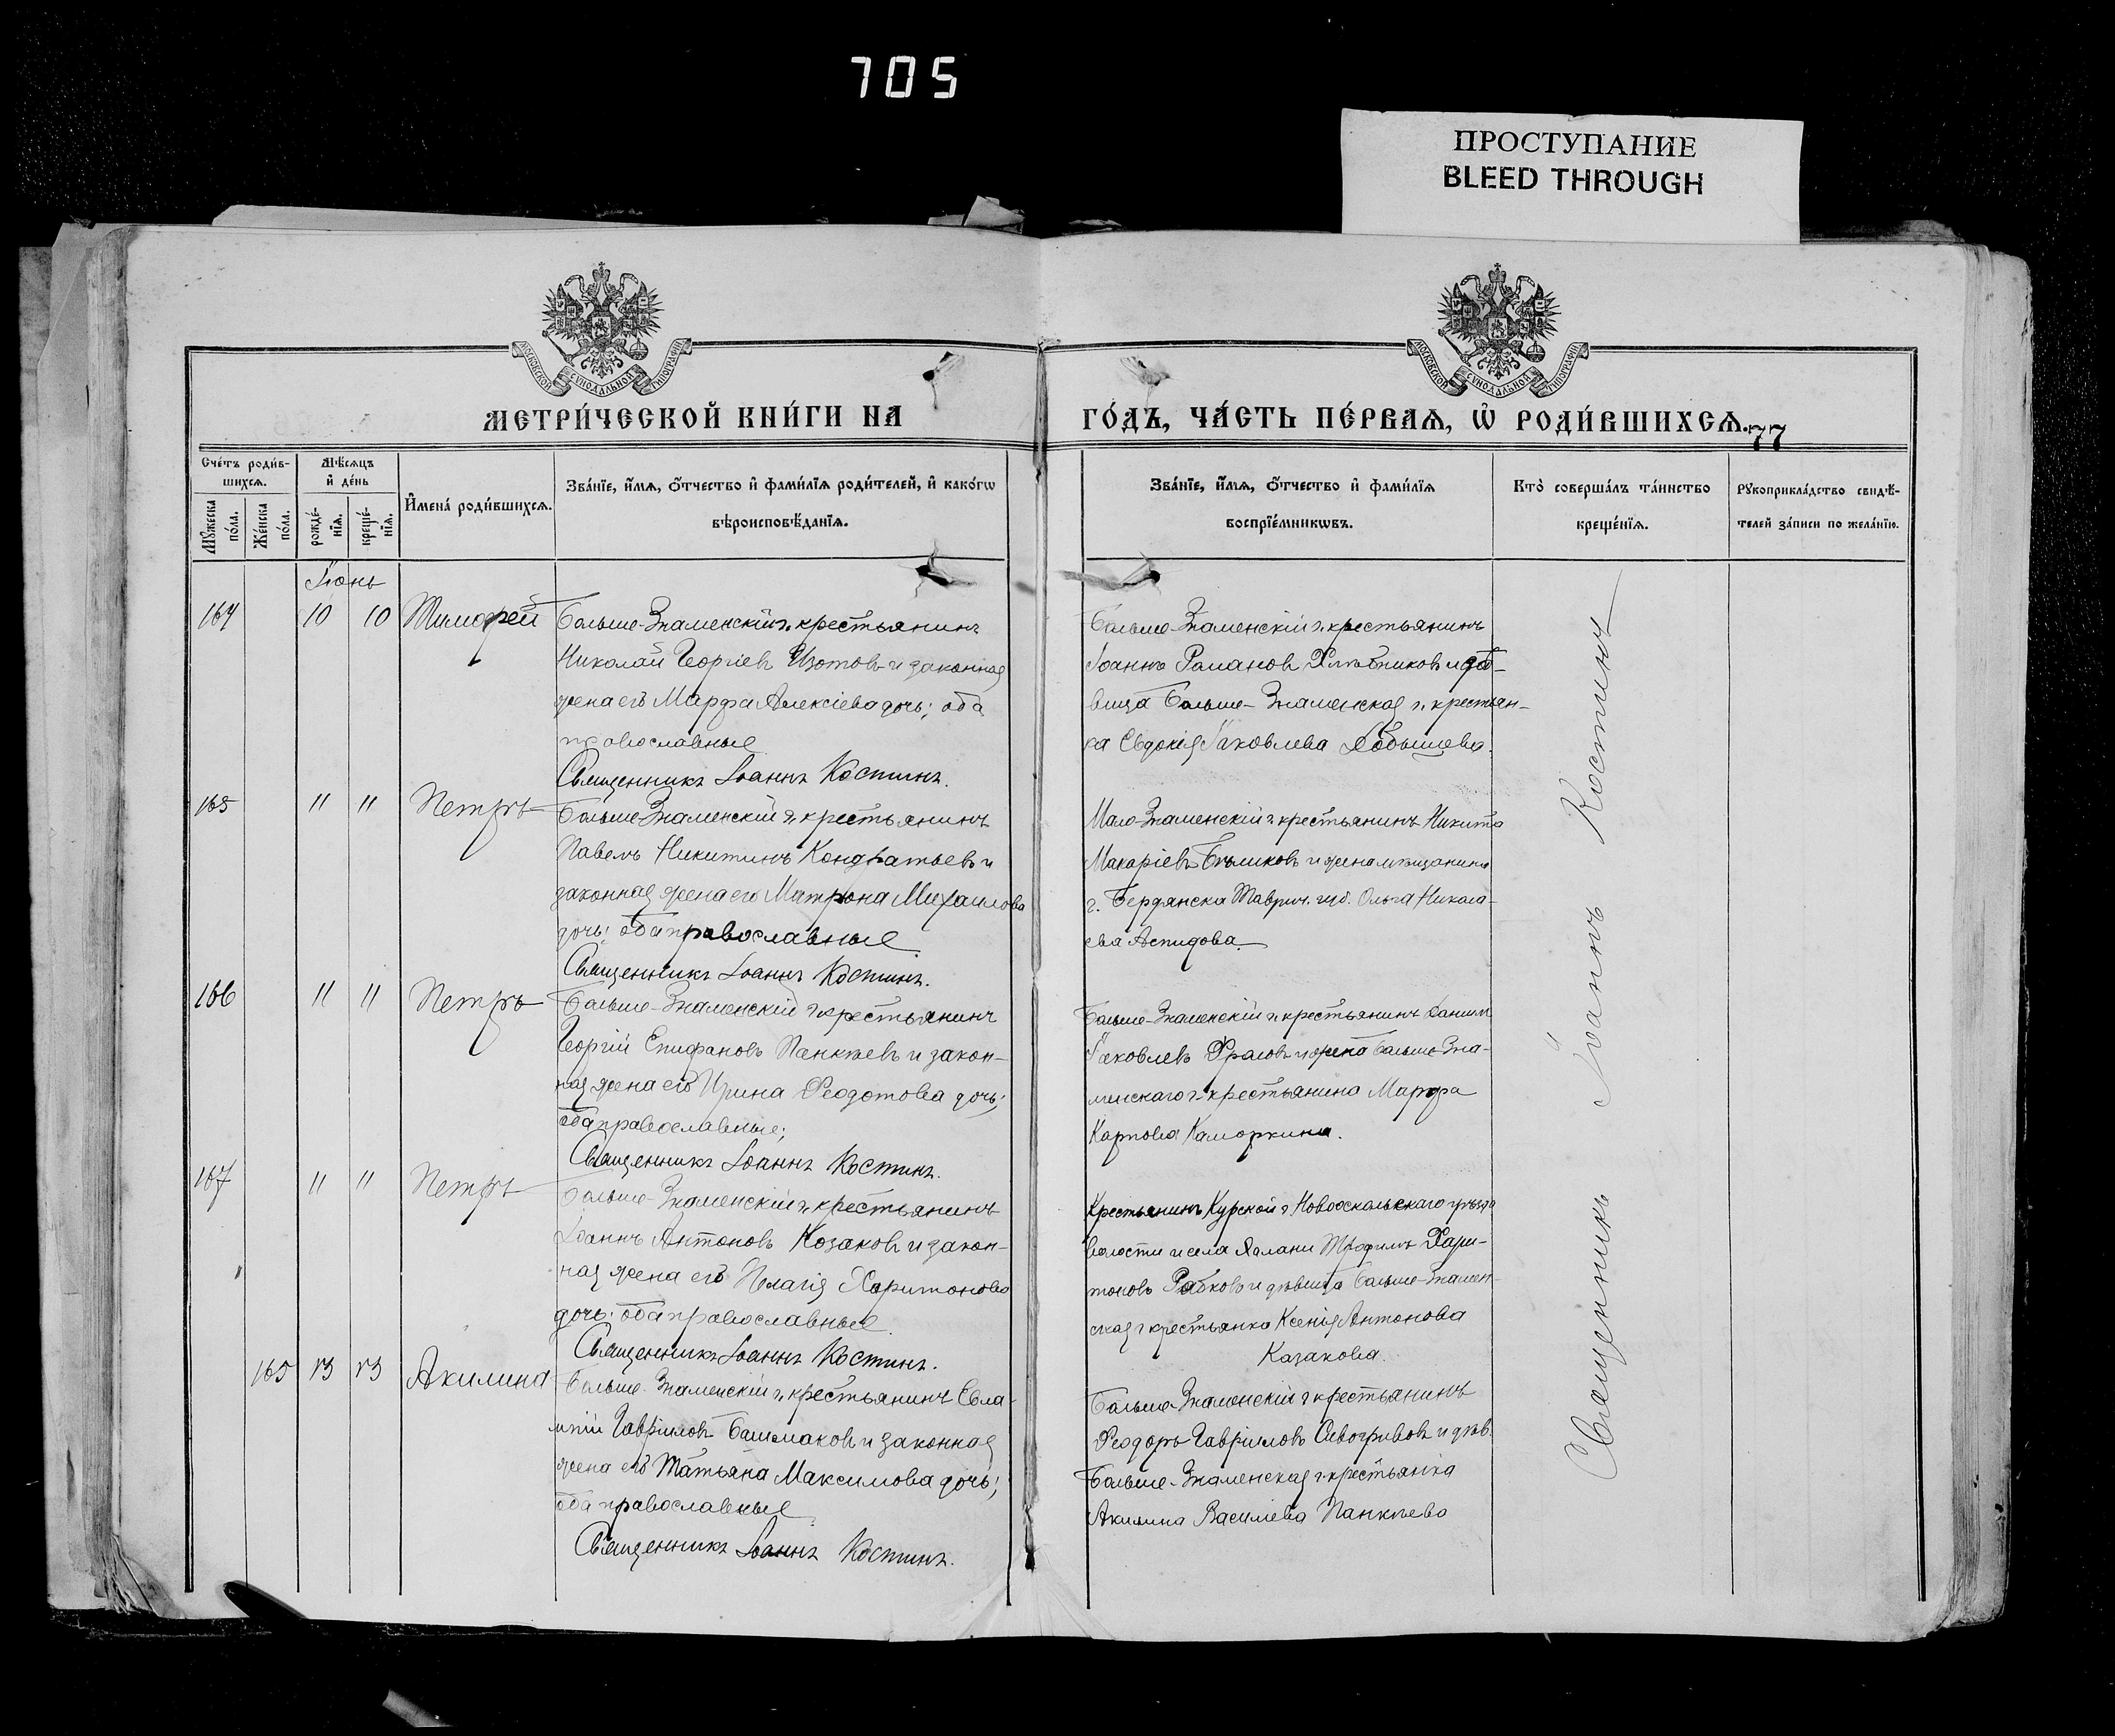 705
ПРОСТУПАНИЕ
BLEED THROUGH
МОСКОВСКОЙ СѴНОДАЛЬНОЙ ТИПОГРАФІИ
МОСКОВСКОЙ СѴНОДАЛЬНОЙ ТИПОГРАФІИ
МЕТРИ́ЧЕСКОЙ КНИ́ГИ НА
ГО́ДЪ, ЧА́СТЬ ПЕ́РВАѦ, Ѽ РОДИ́ВШИХСѦ. 77
Сче́тъ роди́в-
шихсѧ.
Мꙋжеска по́ла.
Же́нска по́ла.
Мѣ́сѧцъ
и҆ де́нь
рожде́-
нїѧ.
креще́-
нїѧ.
И҆мена̀ роди́вшихсѧ.
Зва́нїе, и҆́мѧ, ѻ҆́тчество и҆ фами́лїѧ роди́телей, и҆ како́гѡ
вѣроисповѣ́данїѧ.
Зва́нїе, и҆́мѧ, ѻ҆́тчество и҆ фами́лїѧ
воспрїе́мникѡвъ.
Кто̀ соверша́лъ та́инство
креще́нїѧ.
Рꙋкоприкла́дство свидѣ́-
телей за́писи по жела́нїю.
Іюнь
164 10 10 Тимофей
Больше-Знаменскій г. крестьянинъ
Николай Георгіевъ Изотовъ и законная
жена его Марфа Алексіева дочь; оба
православные
Священникъ Іоаннъ Костинъ.
Больше-Знаменскій г. крестьянинъ
Іоаннъ Романовъ Хлѣбниковъ и дѣ-
вица Больше-Знаменская г. крестьян-
ка Евдокія Іаковлева Лобышева.
165 11 11 Петръ
Больше-Знаменскій г. крестьянинъ
Павелъ Никитинъ Кондратьевъ и
законная жена его Матрона Михаилова
дочь; оба православные
Священникъ Іоаннъ Костинъ.
Мало-Знаменскій г. крестьянинъ Никита
Макаріевъ Бѣликовъ и жена мѣщанина
г. Бердянска Таврич. губ. Ольга Никола-
ева Аспидова.
166 11 11 Петръ
Больше-Знаменскій г. крестьянинъ
Георгій Епифановъ Панкѣевъ и закон-
ная жена его Ирина Феодотова дочь;
оба православные;
Священникъ Іоаннъ Костинъ.
Больше-Знаменскій г. крестьянинъ
Іаковлевъ Фроловъ и жена Больше-Зна-
менскаго г. крестьянина Марфа
Карпова Каморкина.
167 11 11 Петръ
Больше-Знаменскій г. крестьянинъ
Іоаннъ Антоновъ Козаковъ и закон-
ная жена его Пелагія Харитонова
дочь; оба православные
Священникъ Іоаннъ Костинъ.
Крестьянинъ Курской г. Новооскольскаго уѣзда
волости и села Халани Трофимъ Хари-
тоновъ Рябковъ и дѣвица Больше-Знамен-
ская г. крестьянка Ксенія Антонова
Казакова.
165 13 13 Акилина
Больше-Знаменскій г. крестьянинъ Евла-
мпій Гавріиловъ Башмаковъ и законная
жена его Татьяна Максимова дочь;
оба православные
Священникъ Іоаннъ Костинъ.
Больше-Знаменскій г. крестьянинъ
Феодоръ Гавріиловъ Сивогривовъ и дѣв.
Больше-Знаменская г. крестьянка
Акилина Василіева Панкѣева
Священникъ Іоаннъ Костинъ